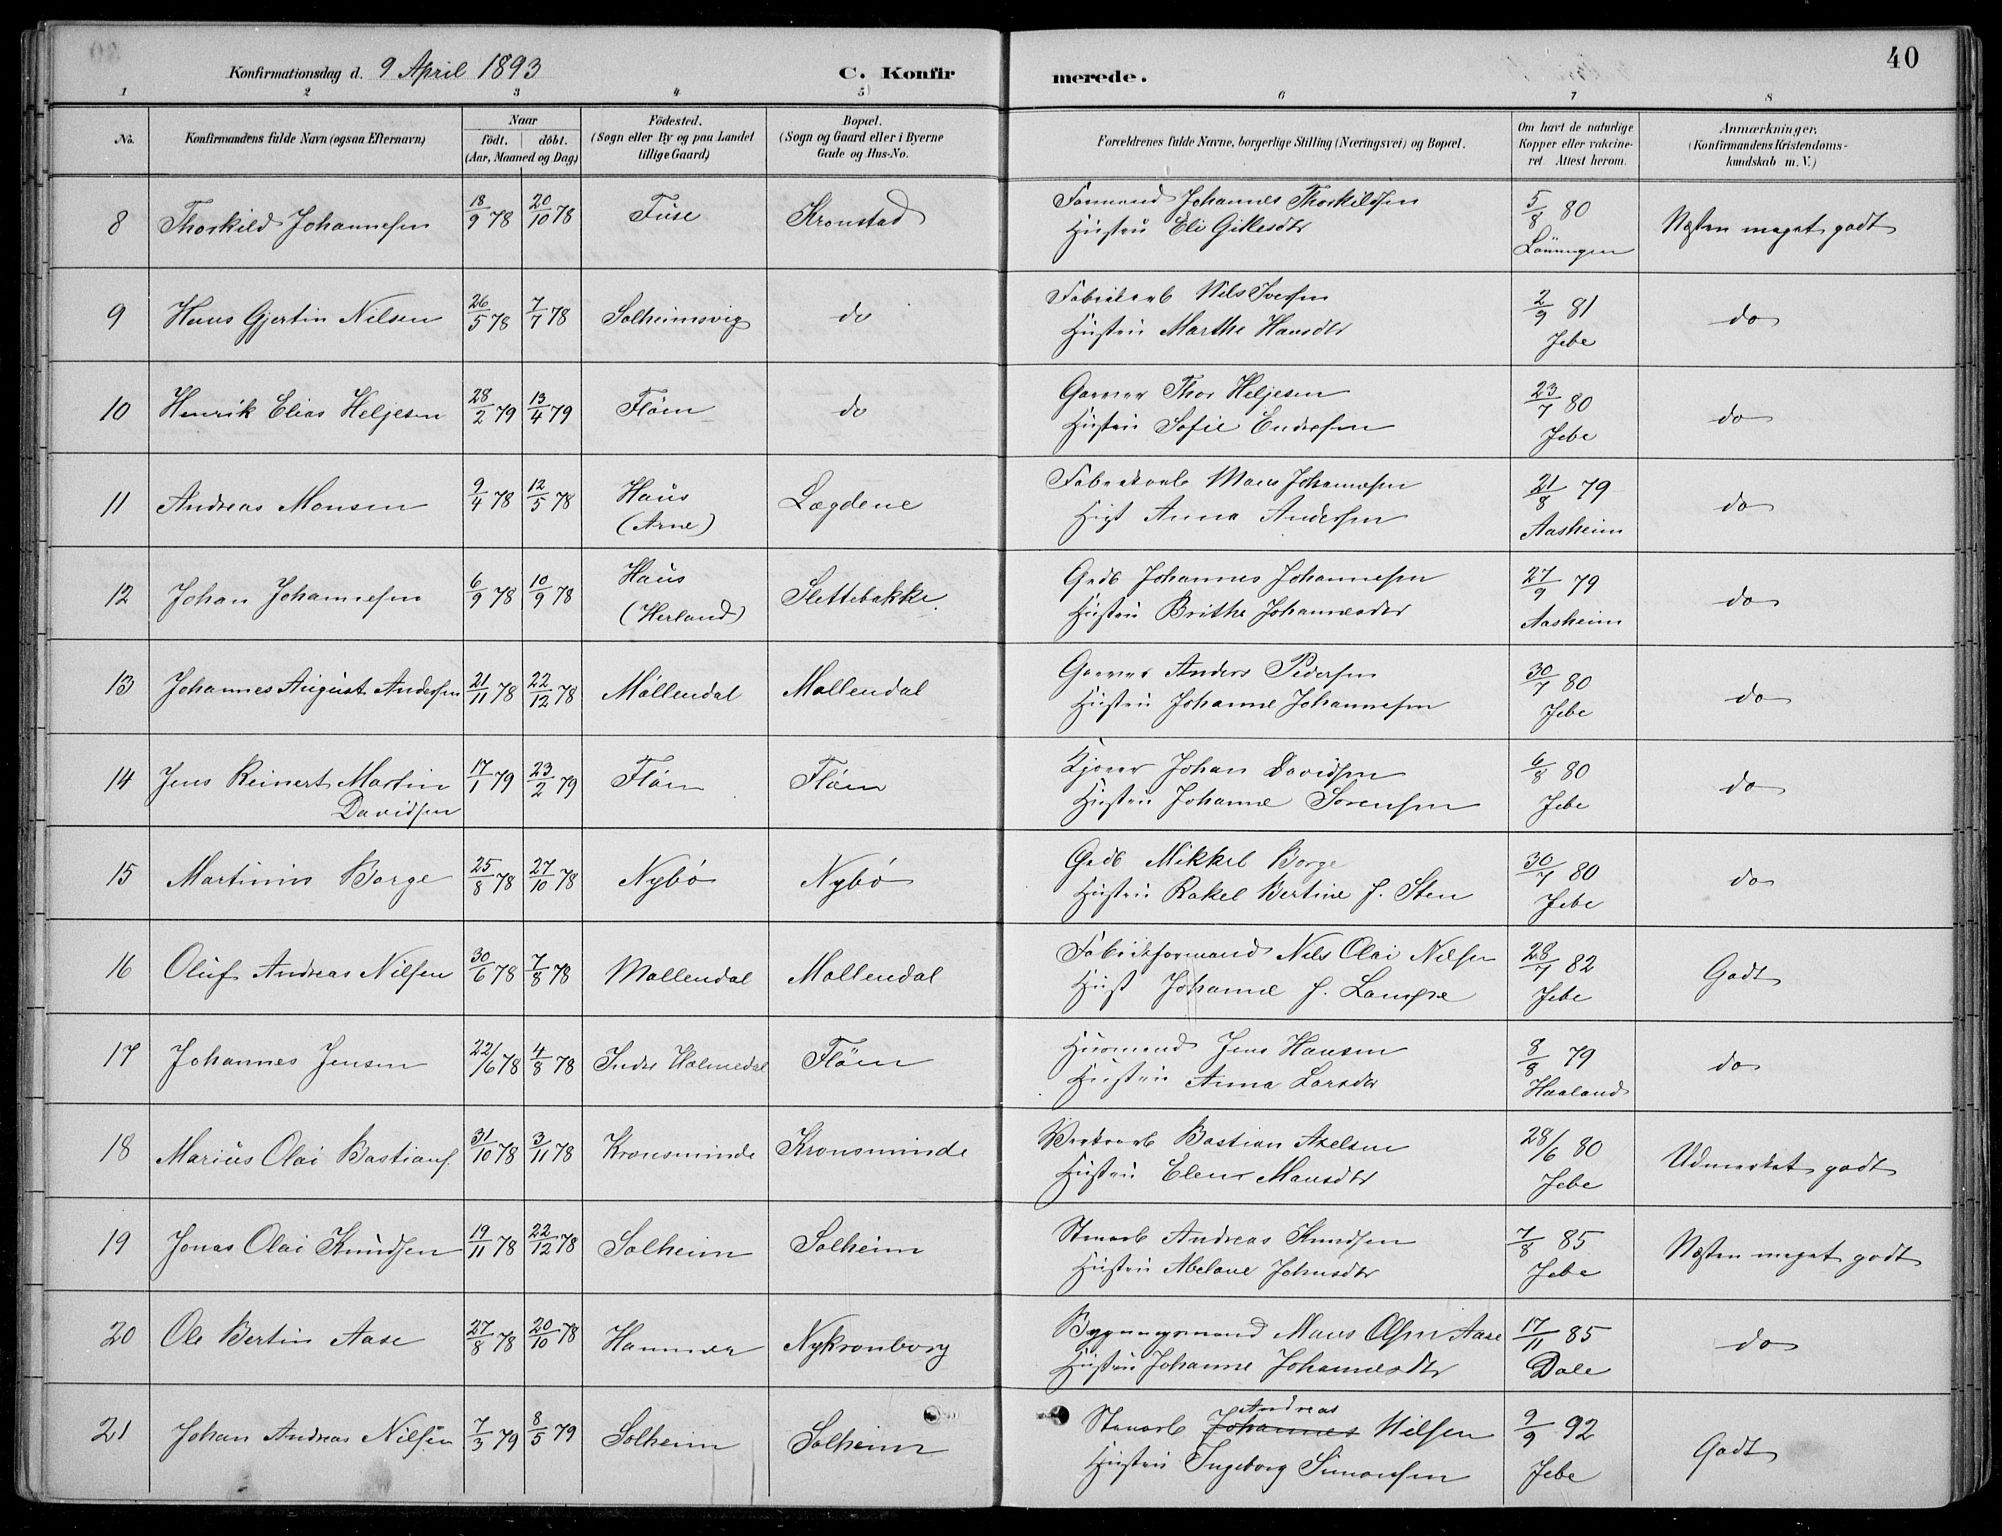 40
Konfirmationsdag d. 9 April 1893 C. Konfir merede.
1 2 3 4 5 6 7 8
No. Konfirmandens fulde Navn (ogsaa Efternavn) Naar födt. döbt. (Aar, Maaned og Dag) Födested. (Sogn eller By og paa Landet tillige Gaard) Bopæl. (Sogn og Gaard eller i Byerne Gade og Hus-No. Forældrenes fulde Navne, borgerlige Stilling (Næringsvei) og Bopæl. Om havt de naturlige Kopper eller vaccineret Attest herom. Anmærkninger. (Konfirmandens Kristendomskundskab m. V.)
8 Thorkild Johannesen 18/9 78 20/10 78 Fuse Kronstad Formand Johannes Thorkildsen 5/8 80 Næsten meget godt
Hustru Eli Gillesdtr Lönningen
9 Hans Gjertin Nilsen 26/5 78 7/7 78 Solheimsvig do Fabrikarb Nils Iversen 2/9 81 do
Hustru Marthe Hansdtr Jebe
10 Henrik Elias Heljesen 28/2 79 13/4 79 Flöen do Garver Thor Heljesen 23/7 80 do
Hustru Sofie Endresen Jebe
11 Andreas Monsen 9/4 78 12/5 78 Haus Lægdene Fabrikarb Mons Johannesen 21/8 79 do
(Arne) Hust Anna Andersen Aasheim
12 Johan Johannesen 6/9 78 10/9 78 Haus Slettebakke Grdb Johannes Johannesen 27/9 79 do
(Herland) Hustru Brithe Johannesdtr Aasheim
13 Johannes August Andersen 21/11 78 22/12 78 Möllendal Mollendal Garver Anders Pedersen 30/7 80 do
Hustru Johanne Johannesen Jebe
14 Jens Reinert Martin 17/1 79 23/2 79 Flöen Flöen Kjörer Johan Davidsen 6/8 80 do
Davidsen Hustru Johanne Sorensen Jebe
15 Martinus Borge 25/8 78 27/10 78 Nybö Nybö Grdb Mikkel Borge 30/7 80 do
Hustru Rakel Bertine f. Sten Jebe
16 Oluf Andreas Nilsen 30/6 78 7/8 78 Mollendal Mollendal Fabrikformand Nils Olai Nilsen 28/7 82 Godt
Hust Johanne f. Jebe
17 Johannes Jensen 22/6 78 4/8 78 Indre Holmedal Flöen Husmand Jens Hansen 8/8 79 do
Hustru Anna Larsdtr Haaland
18 Marius Olai Bastians. 31/10 78 3/11 78 Kronsminde Kronsminde Verkarb Bastian Axelsen 28/6 80 Udmerket godt
Hustru Elen Mansdtr Jebe
19 Jonas Olai Knudsen 19/11 78 22/12 78 Solheim Solheim Stenarb Andreas Knudsen 7/8 85 Næsten meget godt
Hustru Abelone Johnsdtr Jebe
20 Ole Bertin Aase 27/8 78 20/10 78 Hammer Nykronborg Bygningsmand Mons Olsen Aase 17/11 85 do
Hustru Johanne Johannesdtr Dale
21 Johan Andreas Nilsen 7/3 79 8/5 79 Solheim Solheim Stenarb Johannes Andreas Nilsen 9/9 92 Godt
Hustru Ingeborg Simonsen Jebe